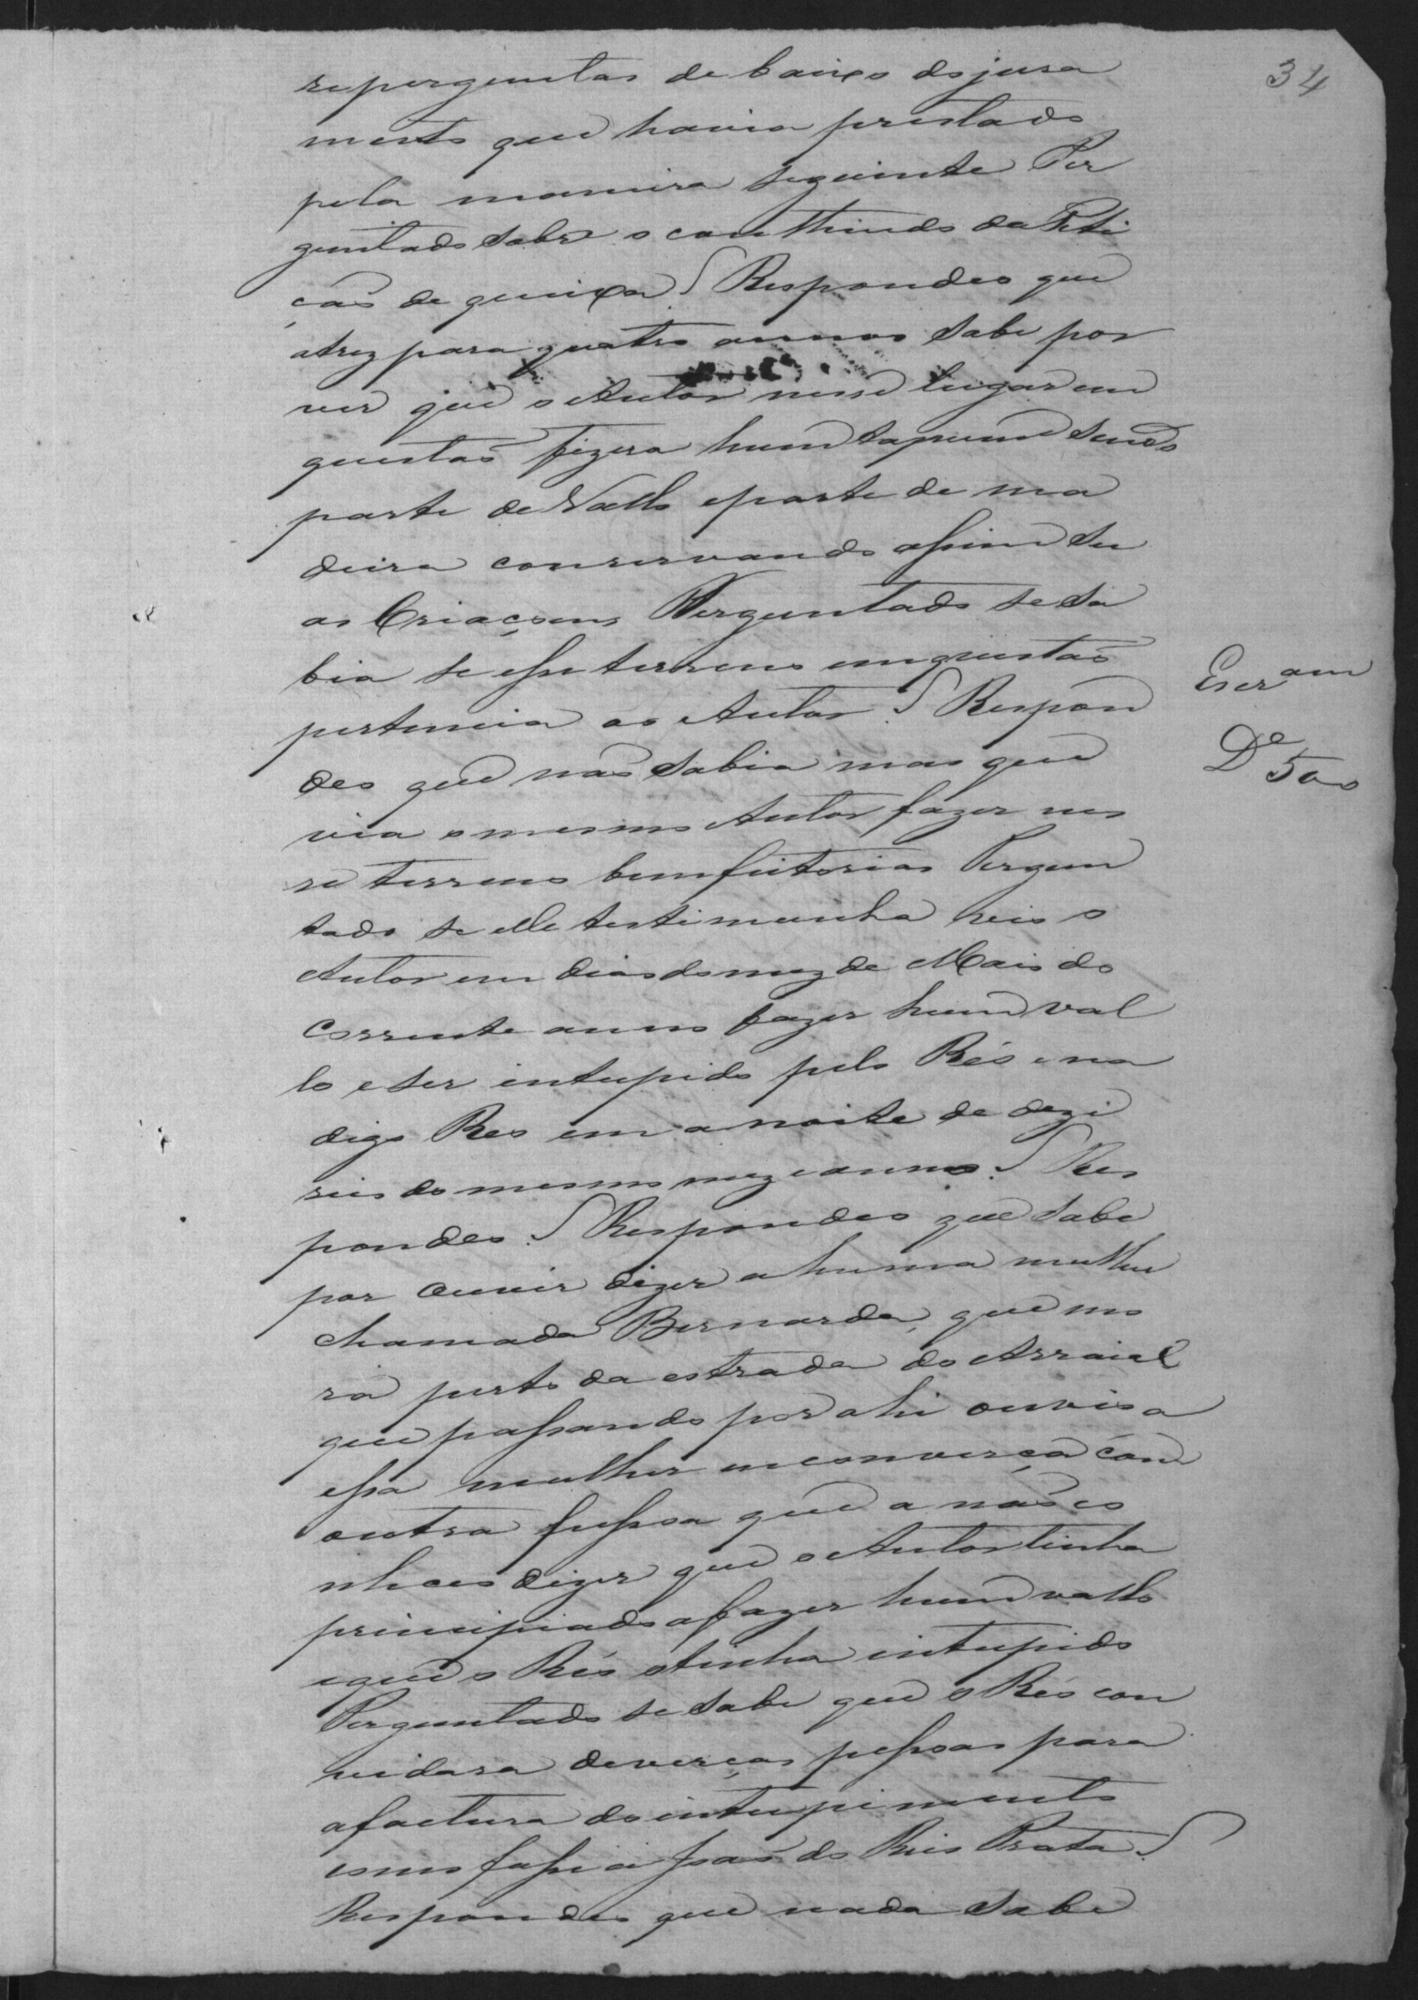 34
repergentas de baixo do jura
mento que havia prestado
pela maneira seguinte Per
guntado sobre o conthiudo da Peti
çaõ de queixa Respondeo que
atrez para quatro annos sabe por
ver que o Autor nesse lugar em
questaõ fizera hum tapume sendo
parte de Vallo e parte de ma
deira conservando assim su
as Criaçoens Perguntado se sa
bia se esse terreno em questaõ
pertencia ao Autor Respon
deo que naõ sabia mas que
via o mesmo Autor fazer nes
se terreno bemfeitorias Pergun
tado se elle testimunha veis o
Autor em dias do mez de Maio do
corrente anno fazer hum val
lo e ser intupido pelo Réo e na
digo Reo em a noite de dezi
seis do mesmo mez e anno Res
pondeo Respondeo que sabe
por ouvir dizer a huma mulher
chamada Bernarda, que mo
ra perto da estrada do Arraial
que passando por ahi ouvio a
essa mulher em converça com
outra pessoa que a naõ co
nheceo dizer que o Autor tinha
principiado a fazer hum vallo
e que o Réo o tinha intupido
Perguntado se sabe que o Réo con
vidara deverças pessoas para
a factura do intupimento
Respondeo que nada sabe
Escr am
De 500